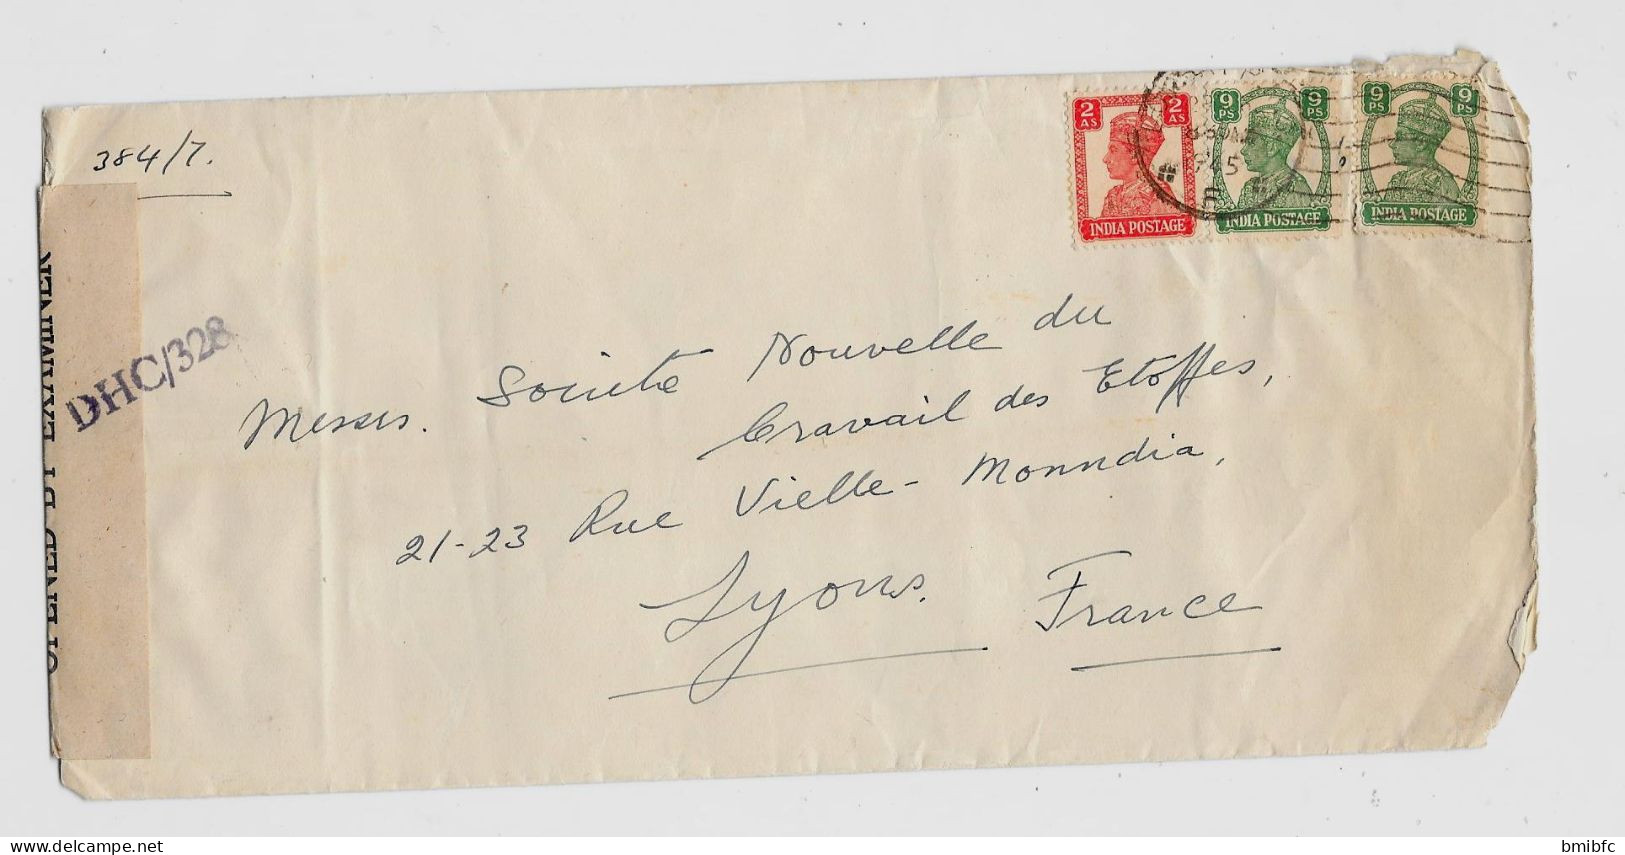 384/7.
2 AS 2 AS
INDIA POSTAGE
9 PS 9 PS
INDIA POSTAGE
9 PS 9 PS
INDIA POSTAGE
OPENED BY EXAMINER
DHC/328
Messrs. Societe Nouvelle du
Travail des Etoffes,
21-23 Rue Vielle-Monndia,
Lyons.
France
delcampe.net
bmibfc